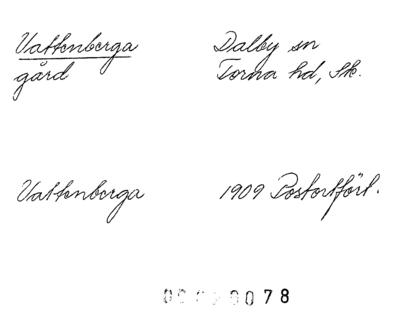 Vattenberga Dalby sn
gård Torna hd, Sk.
Vattenberga 1909 Postortfört.
0078